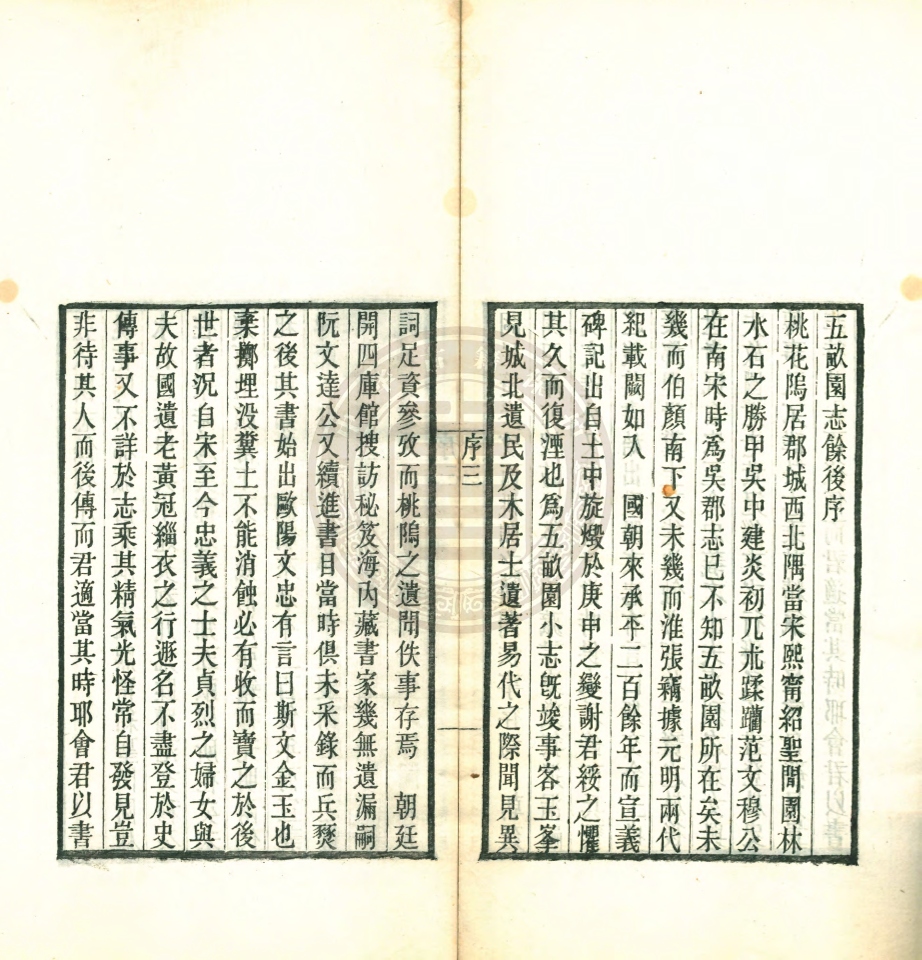 五畝園志餘後序
桃花塢居郡城西北隅當宋熙甯紹聖閒園林
水石之勝甲吳中建炎初兀朮蹂躪范文穆公
在南宋時爲吳郡志已不知五畝園所在矣未
幾而伯顏南下又未幾而淮張竊據元明兩代
紀載闕如入 國朝來承平二百餘年而宣義
碑記出自土中旋燬於庚申之變謝君綏之懼
其久而復湮也爲五畝園小志旣竣事客玉峯
見城北遺民及木居士遺著易代之際聞見異
序三
詞足資參攷而桃塢之遺聞佚事存焉 朝廷
開四庫館搜訪秘笈海內藏書家幾無遺漏嗣
阮文達公又續進書目當時俱未采錄而兵燹
之後其書始出歐陽文忠有言曰斯文金玉也
棄擲埋没糞土不能消蝕必有收而寶之於後
世者況自宋至今忠義之士夫貞烈之婦女與
夫故國遺老黃冠緇衣之行遯名不盡登於史
傳事又不詳於志乘其精氣光怪常自發見豈
非待其人而後傳而君適當其時耶會君以書